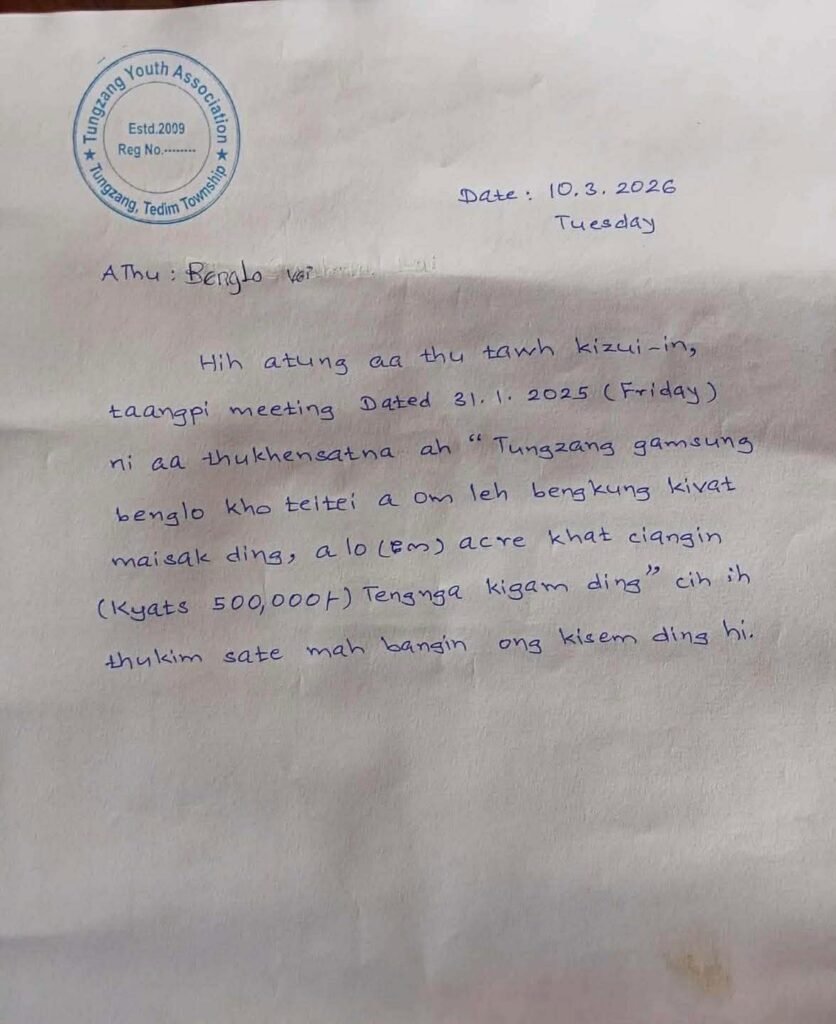 Tungzang Youth Association
Estd.2009
Reg No.........
Tungzang, Tedim Township
Date: 10.3.2026
Tuesday
A Thu : Benglo vai
Hih atung aa thu tawh kizui-in,
taangpi meeting Dated 31.1.2025 (Friday)
ni aa thukhensatna ah "Tungzang gamsung
benglo kho teitei a om leh bengkung kivat
maisak ding, a lo (ဧက) acre khat ciangin
(Kyats 500,000/-) Tengnga kigam ding" cih ih
thukim sate mah bangin ong kisem ding hi.